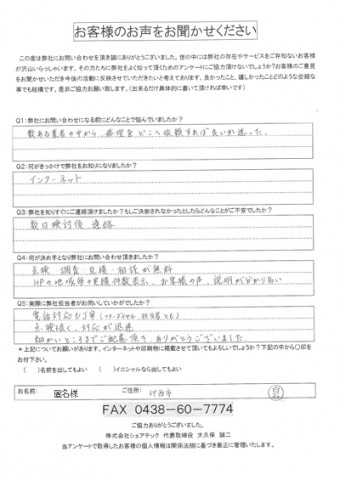 お客様のお声をお聞かせください
この度は弊社にお問い合わせを頂き誠にありがとうございました。世の中には弊社の存在やサービスをご存知ないお客様
が沢山いらっしゃいます。その方たちに弊社をよく知って頂くためのアンケートにご協力頂けないでしょうか?お客様のご意見
をお聞かせいただき今後の活動に反映させていただきたいと考えております。良かったこと、嬉しかったことどのような些細な
事でも結構です。是非ご協力お願い致します。(出来るだけ具体的に書いて頂ければ幸いです)
Q1:弊社にお問い合わせになる前にどんなことで悩んでいましたか?
数ある業者の中から、修理をどこへ依頼すれば良いか迷った。
Q2:何がきっかけで弊社をお知りになりましたか?
インターネット
Q3:弊社を知りすぐにご連絡頂けましたか?もしご決断されなかったとしたらどんなことがご不安でしたか?
数日検討後 連絡
Q4:何が決め手となり弊社にお問い合わせ頂きましたか?
点検・調査・見積・相談が無料
HPの地域毎の実績件数表示、お客様の声、説明が分かり易い
Q5:実際に弊社担当者がお伺いしていかがでしたか?
電話対応も丁寧(フリーダイヤル、担当者とも)
点検後も対応が迅速
細かいところまでご配慮頂き、ありがとうございました
*上記についてお願いがあります。インターネットや印刷物に掲載させて頂いてもよろしいでしょうか?下記の中から〇印を
お付下さい。
( )名前を出してもよい ( )イニシャルなら出してもよい
お名前: 匿名様 ご住所: 印西市
FAX 0438-60-7774
ご協力ありがとうございました。
株式会社シェアテック 代表取締役 大久保 誠二
当アンケートで取得したお客様の個人情報は関係法規に基づき厳正に管理いたします。